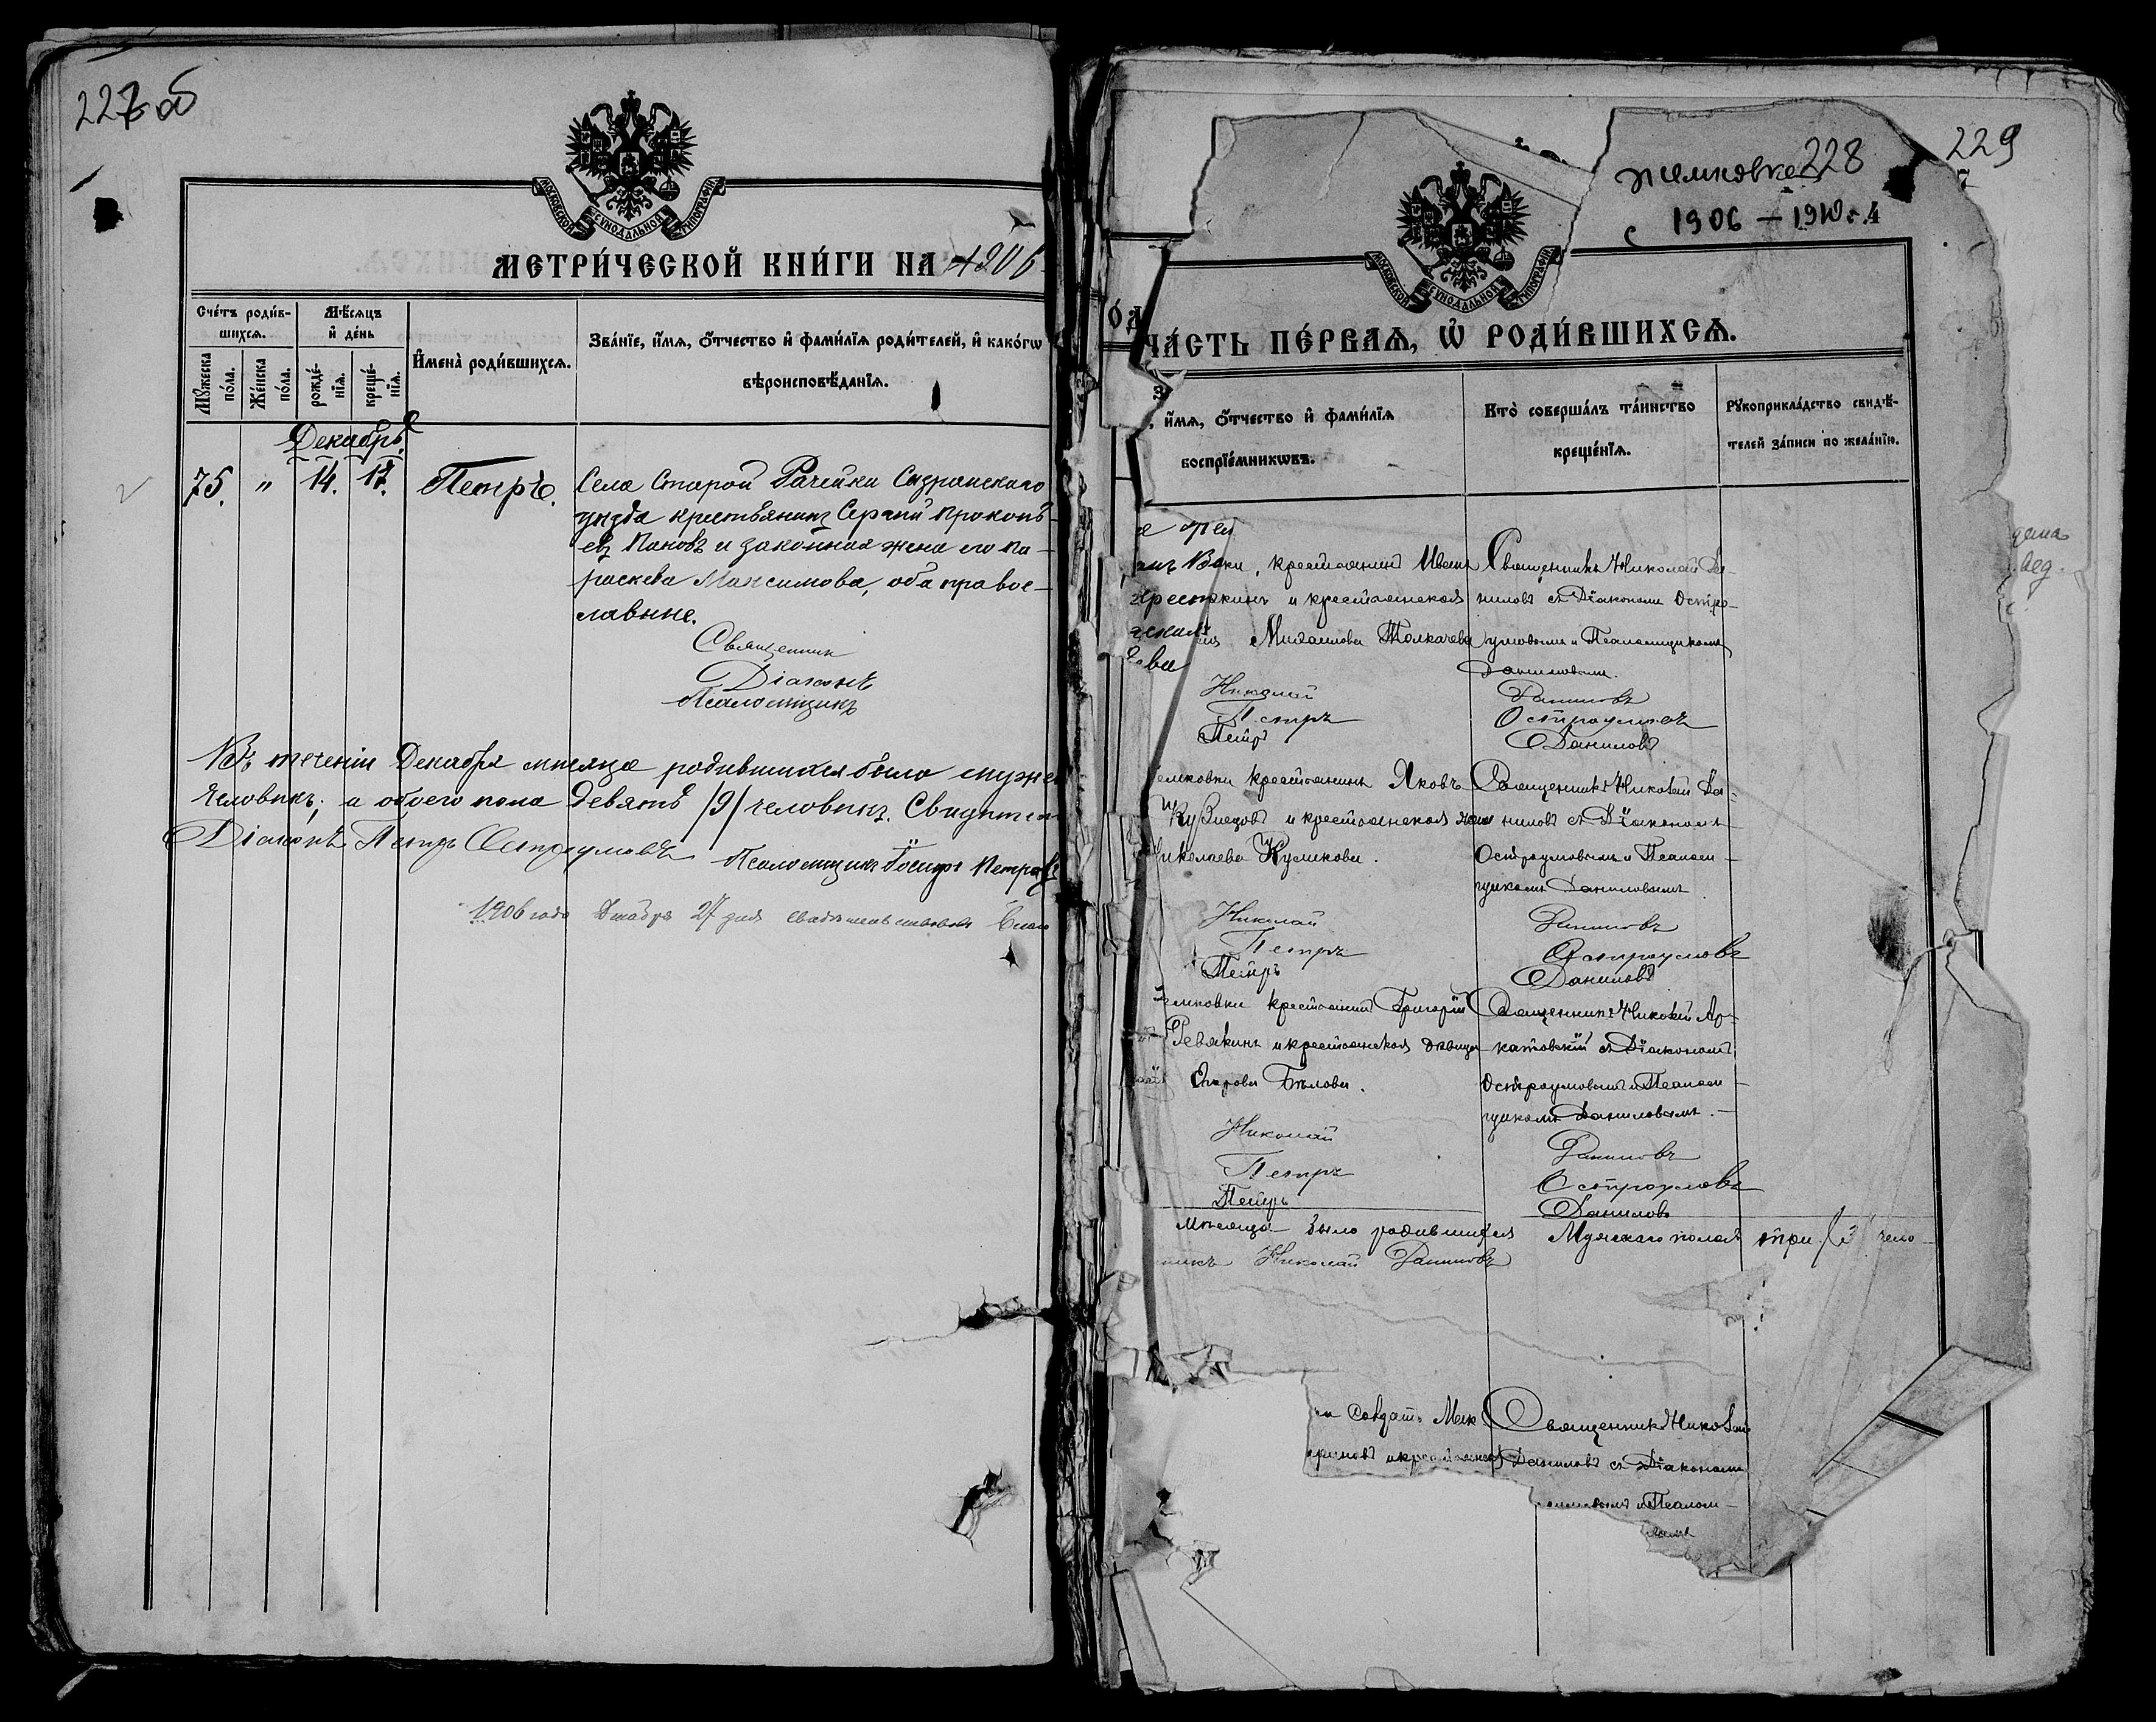 227 об
МОСКОВСКОЙ СѴНОДАЛЬНОЙ ТИПОГРАФІИ
МЕТРИ́ЧЕСКОЙ КНИ́ГИ НА 1906
Сче́тъ роди́в-
шихсѧ.
Мѣ́сѧцъ
и҆ де́нь
Мꙋ́жеска по́ла.
Же́нска по́ла.
рожде́-
нїѧ.
креще́-
нїѧ.
И҆мена̀ роди́вшихсѧ.
Зва́нїе, и҆́мѧ, ѻ҆́тчество и҆ фами́лїѧ роди́телей, и҆ како́гѡ
вѣроисповѣ́данїѧ.
Декабрь
75. " 14. 17. Петръ.
Села Старой Рачейки Сызранскаго
уѣзда крестьянинъ Сергѣй Прокопь-
евъ Пановъ и законная жена его Па-
раскева Максимова, оба правос-
лавные.
Священник
Діаконъ
Псаломщикъ
Въ теченіи Декабря мѣсяца родившихся было мужес
человѣкъ, а обоего пола девять /9/ человѣкъ. Свидѣтел
Діаконъ Петръ Остроумовъ Псаломщикъ Іосифъ Петровъ
1906 года Декабря 27 дня свидѣтельствовал
229
228
с 1906 – 1910 г. 4
МОСКОВСКОЙ СѴНОДАЛЬНОЙ ТИПОГРАФІИ
ЧА́СТЬ ПЕ́РВАѦ, Ѡ҆ РОДИ́ВШИХСѦ.
, и҆́мѧ, ѻ҆́тчество и҆ фами́лїѧ
воспрїе́мникѡвъ.
Кто̀ соверша́лъ та́инство
креще́нїѧ.
Рꙋкоприкла́дство свидѣ́-
телей за́писи по жела́нїю.
крестьянинъ Иванъ
и крестьянская
Михаилова Толкачева
Священникъ Николай Да-
ниловъ съ Діакономъ Остро-
умовымъ и Псаломщикомъ
Даниловымъ.
Николай Даниловъ
Петръ Остроумовъ
Петръ Даниловъ
емковки крестьянинъ Яковъ
Кузнецовъ и крестьянская жена
Николаева Куликова.
Священникъ Николай Да-
ниловъ съ Діакономъ
Остроумовымъ и Псалом-
щикомъ Даниловымъ
Николай Даниловъ
Петръ Остроумовъ
Петръ Даниловъ
емковки крестьянинъ Григорій
Ревякинъ и крестьянская дѣвица
Бѣлова.
Священникъ Николай Ар-
катовскій съ Діакономъ
Остроумовымъ и Псалом-
щикомъ Даниловымъ.
Николай Даниловъ
Петръ Остроумовъ
Петръ Даниловъ
мѣсяца было родившихся Мужскаго пола три /3/ чело-
никъ Николай Даниловъ
Солдатъ
Священникъ Николай
Даниловъ съ Діакономъ
и Псалом-